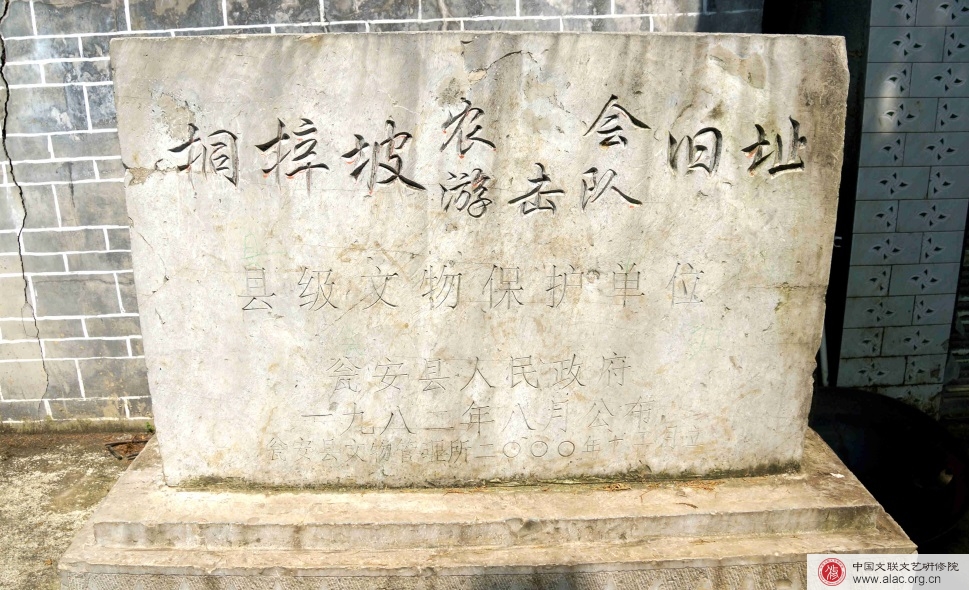 桐梓坡农会游击队旧址
县级文物保护单位
瓮安县人民政府
一九八二年八月公布
瓮安县文物管理所二〇〇〇年十二月立
中国文联文艺研修院
www.alac.org.cn